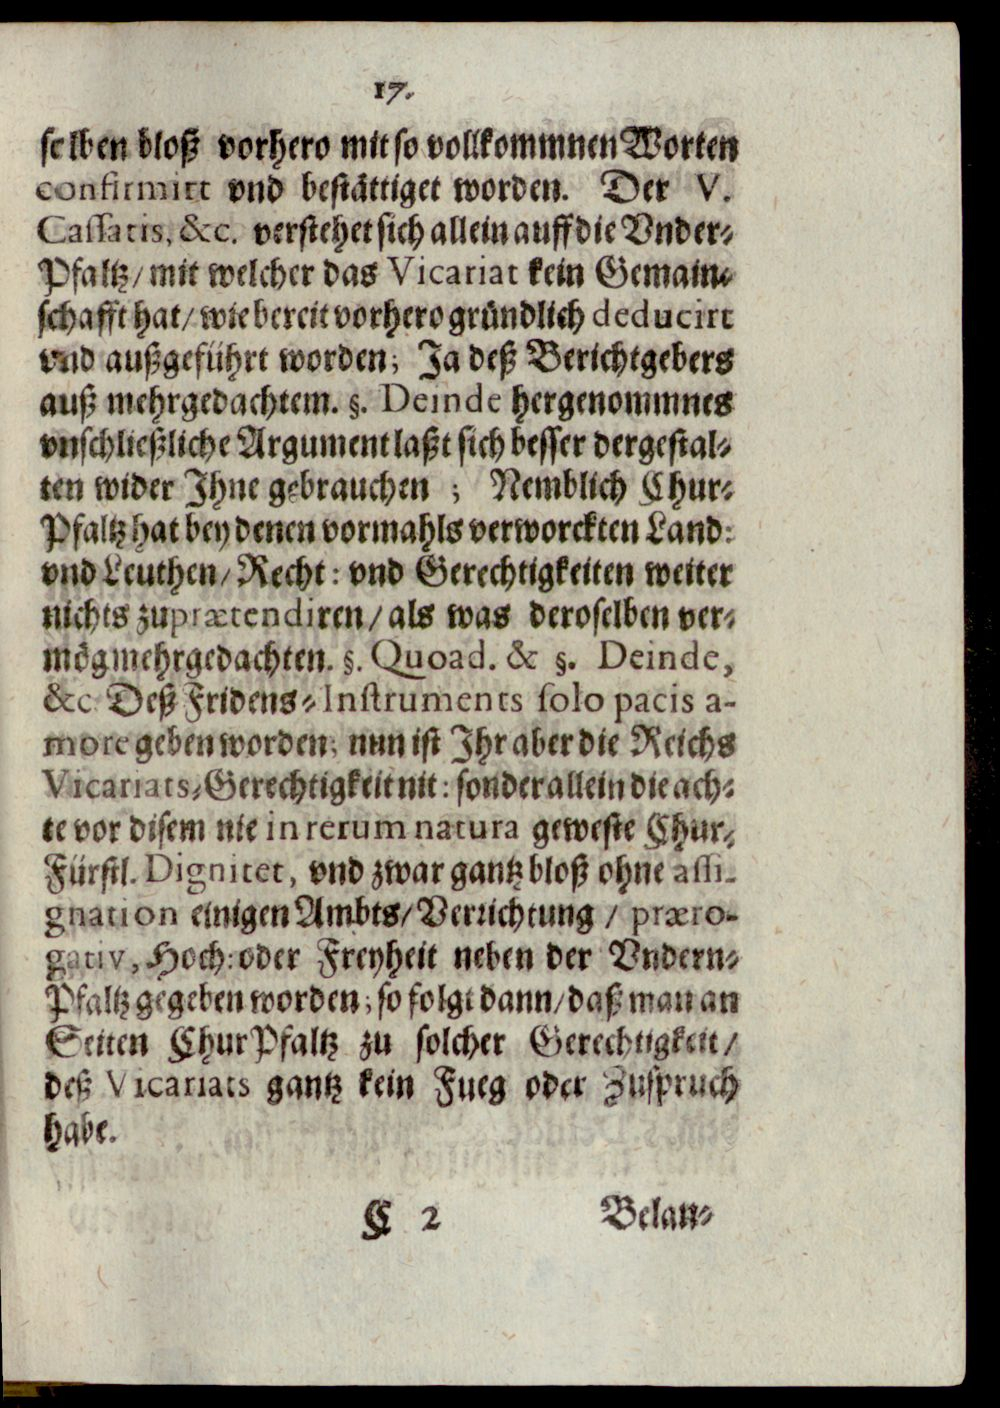 17.
selben bloß vorhero mit so vollkommnen Worten
confirmirt vnd bestättiget worden. Der V.
Cassatis, &c. verstehet sich allein auff die Vnder-
Pfaltz/ mit welcher das Vicariat kein Gemain-
schafft hat/ wie bereit vorhero gründlich deducirt
vnd außgeführt worden; Ja deß Berichtgebers
auß mehrgedachtem. §. Deinde hergenommnes
vnschließliche Argument laßt sich besser dergestal-
ten wider Ihne gebrauchen ; Nemblich Chur-
Pfaltz hat bey denen vormahls verworckten Land:
vnd Leuthen/ Recht: vnd Gerechtigkeiten weiter
nichts zuprætendiren/ als was deroselben ver-
mög mehrgedachten. §. Quoad. & §. Deinde,
&c Deß Fridens-Instruments solo pacis a-
more geben worden; nun ist Ihr aber die Reichs
Vicariats-Gerechtigkeit nit: sonder allein die ach-
te vor disem nie in rerum natura geweste Chur-
Fürstl. Dignitet, vnd zwar gantz bloß ohne assi-
gnation einigen Ambts/ Verrichtung / præro-
gativ, Hoch: oder Freyheit neben der Vndern-
Pfaltz gegeben worden; so folgt dann/ daß man an
Seiten ChurPfaltz zu solcher Gerechtigkeit/
deß Vicariats gantz kein Fueg oder Zuspruch
habe.
C 2 Belan-